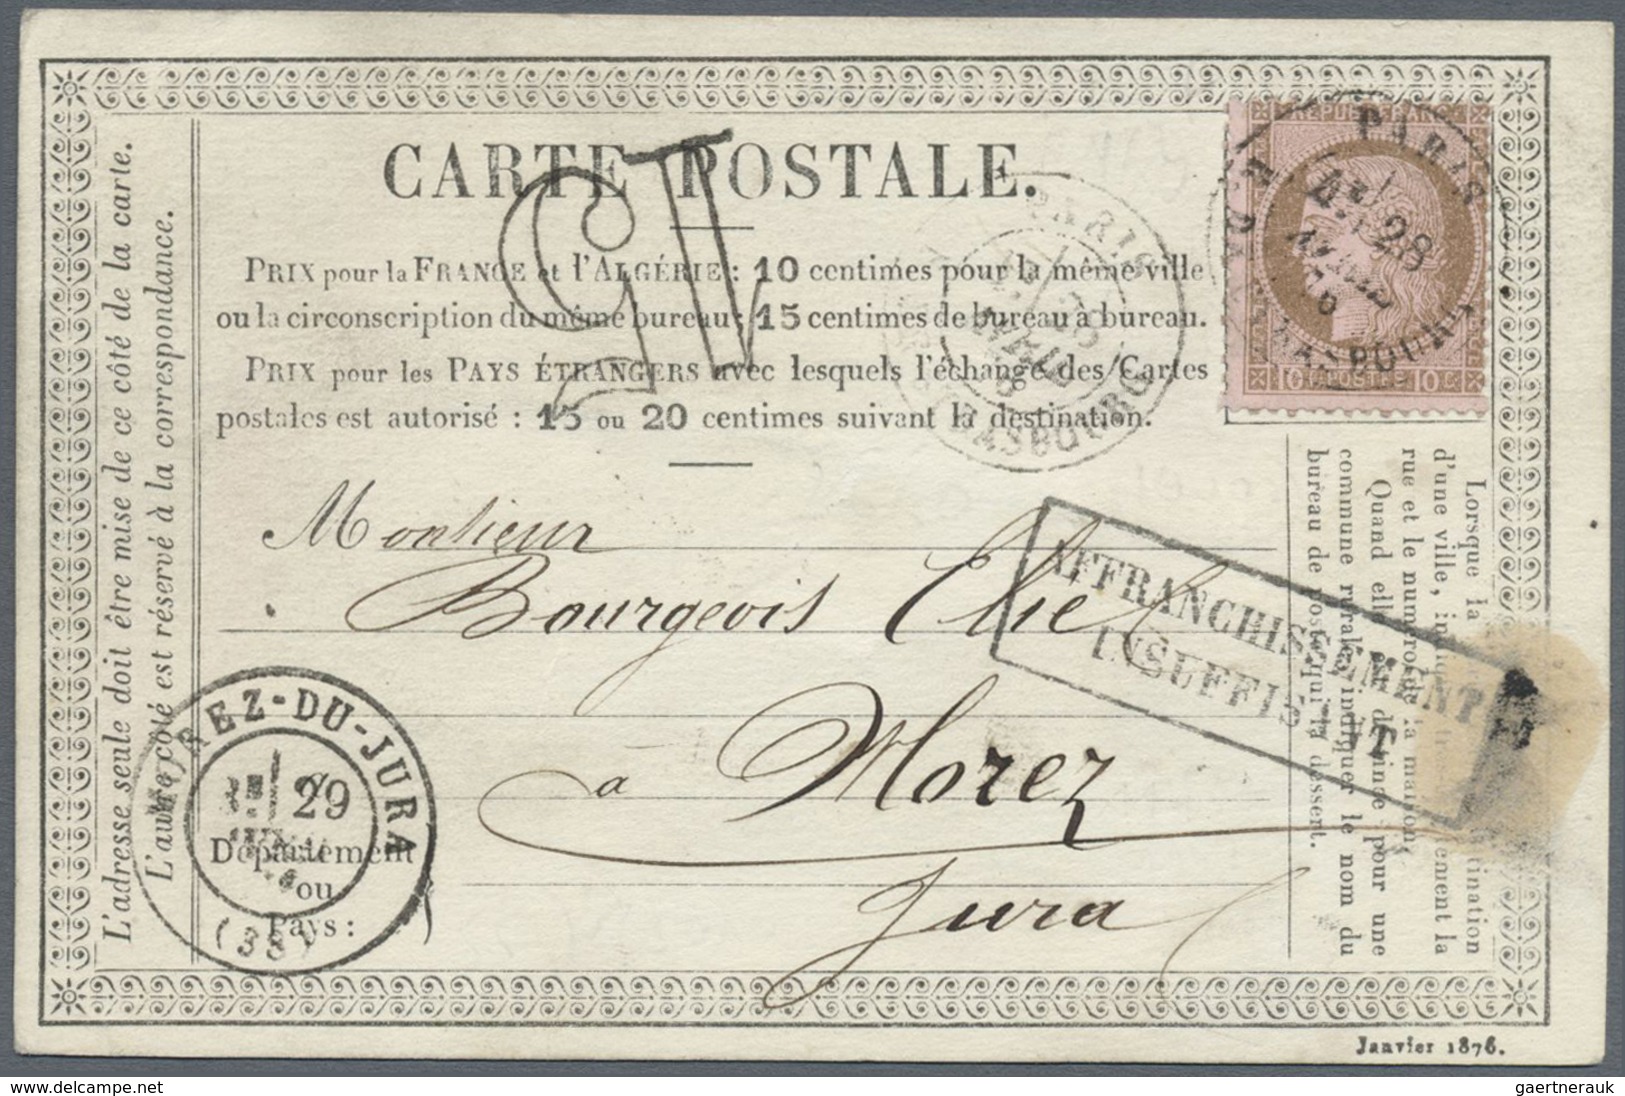 CARTE POSTALE.
PRIX pour la FRANCE et l'ALGÉRIE : 10 centimes pour la même ville
ou la circonscription du même bureau ; 15 centimes de bureau à bureau.
PRIX pour les PAYS ÉTRANGERS avec lesquels l'échange des Cartes
postales est autorisé : 15 ou 20 centimes suivant la destination.
L'adresse seule doit être mise de ce côté de la carte.
L'autre côté est réservé à la correspondance.
15
PARIS
STRASBOURG
REPUB. FRANC.
10 C. POSTE 10 C.
PARIS
28
AVRIL
76
STRASBOURG
Monsieur
Bourgeois Elie
à Morez
Jura
AFFRANCHISSEMENT
INSUFFISANT
MOREZ-DU-JURA
29
(38)
Département
ou
Pays :
Lorsque la destination
d'une ville, la
rue et le numéro de la maison.
Quand elle pour une
commune rurale, indiquer le nom du
bureau de poste qui la dessert.
Janvier 1876.
gaertnerauk © www.delcampe.net